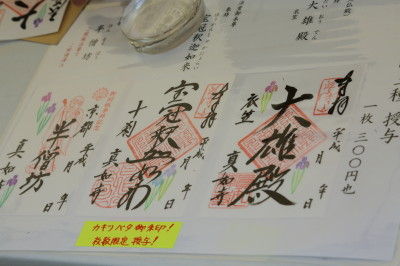 大雄殿
衣笠
宝冠釈迦如来
半僧坊
二種授与
一枚三〇〇円也
奉拝
大雄殿
衣笠
平成 年 月 日
真如寺
奉拝
宝冠釈迦如来
十刹
平成 年 月 日
真如寺
半僧坊
京都
平成 年 月 日
真如寺
カキツバタ御朱印!
枚数限定授与!